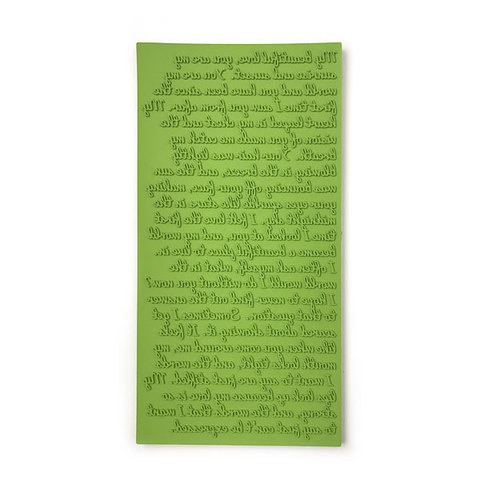 My beautiful love, you are my
sunrise and sunset. You are my
world and you have been since the
first time I saw you from afar. My
heart leaped in my chest and the
vision of you made me catch my
breath. Your hair was lightly
blowing in the breeze, and the sun
was bouncing off your face, making
your eyes sparkle like stars in the
midnight sky. I felt love the first
time I looked at you, and my world
became a beautiful place to live in.
I often ask myself, what in the
world would I do without you now?
I hope to never find out the answer
to that question. Sometimes I get
scared about showing it. It feels
like when you come around me, my
mouth locks tight, and the words
I want to say are just stifled. My
lips lock up because my love is so
strong, and the words that I want
to say just can't be expressed.